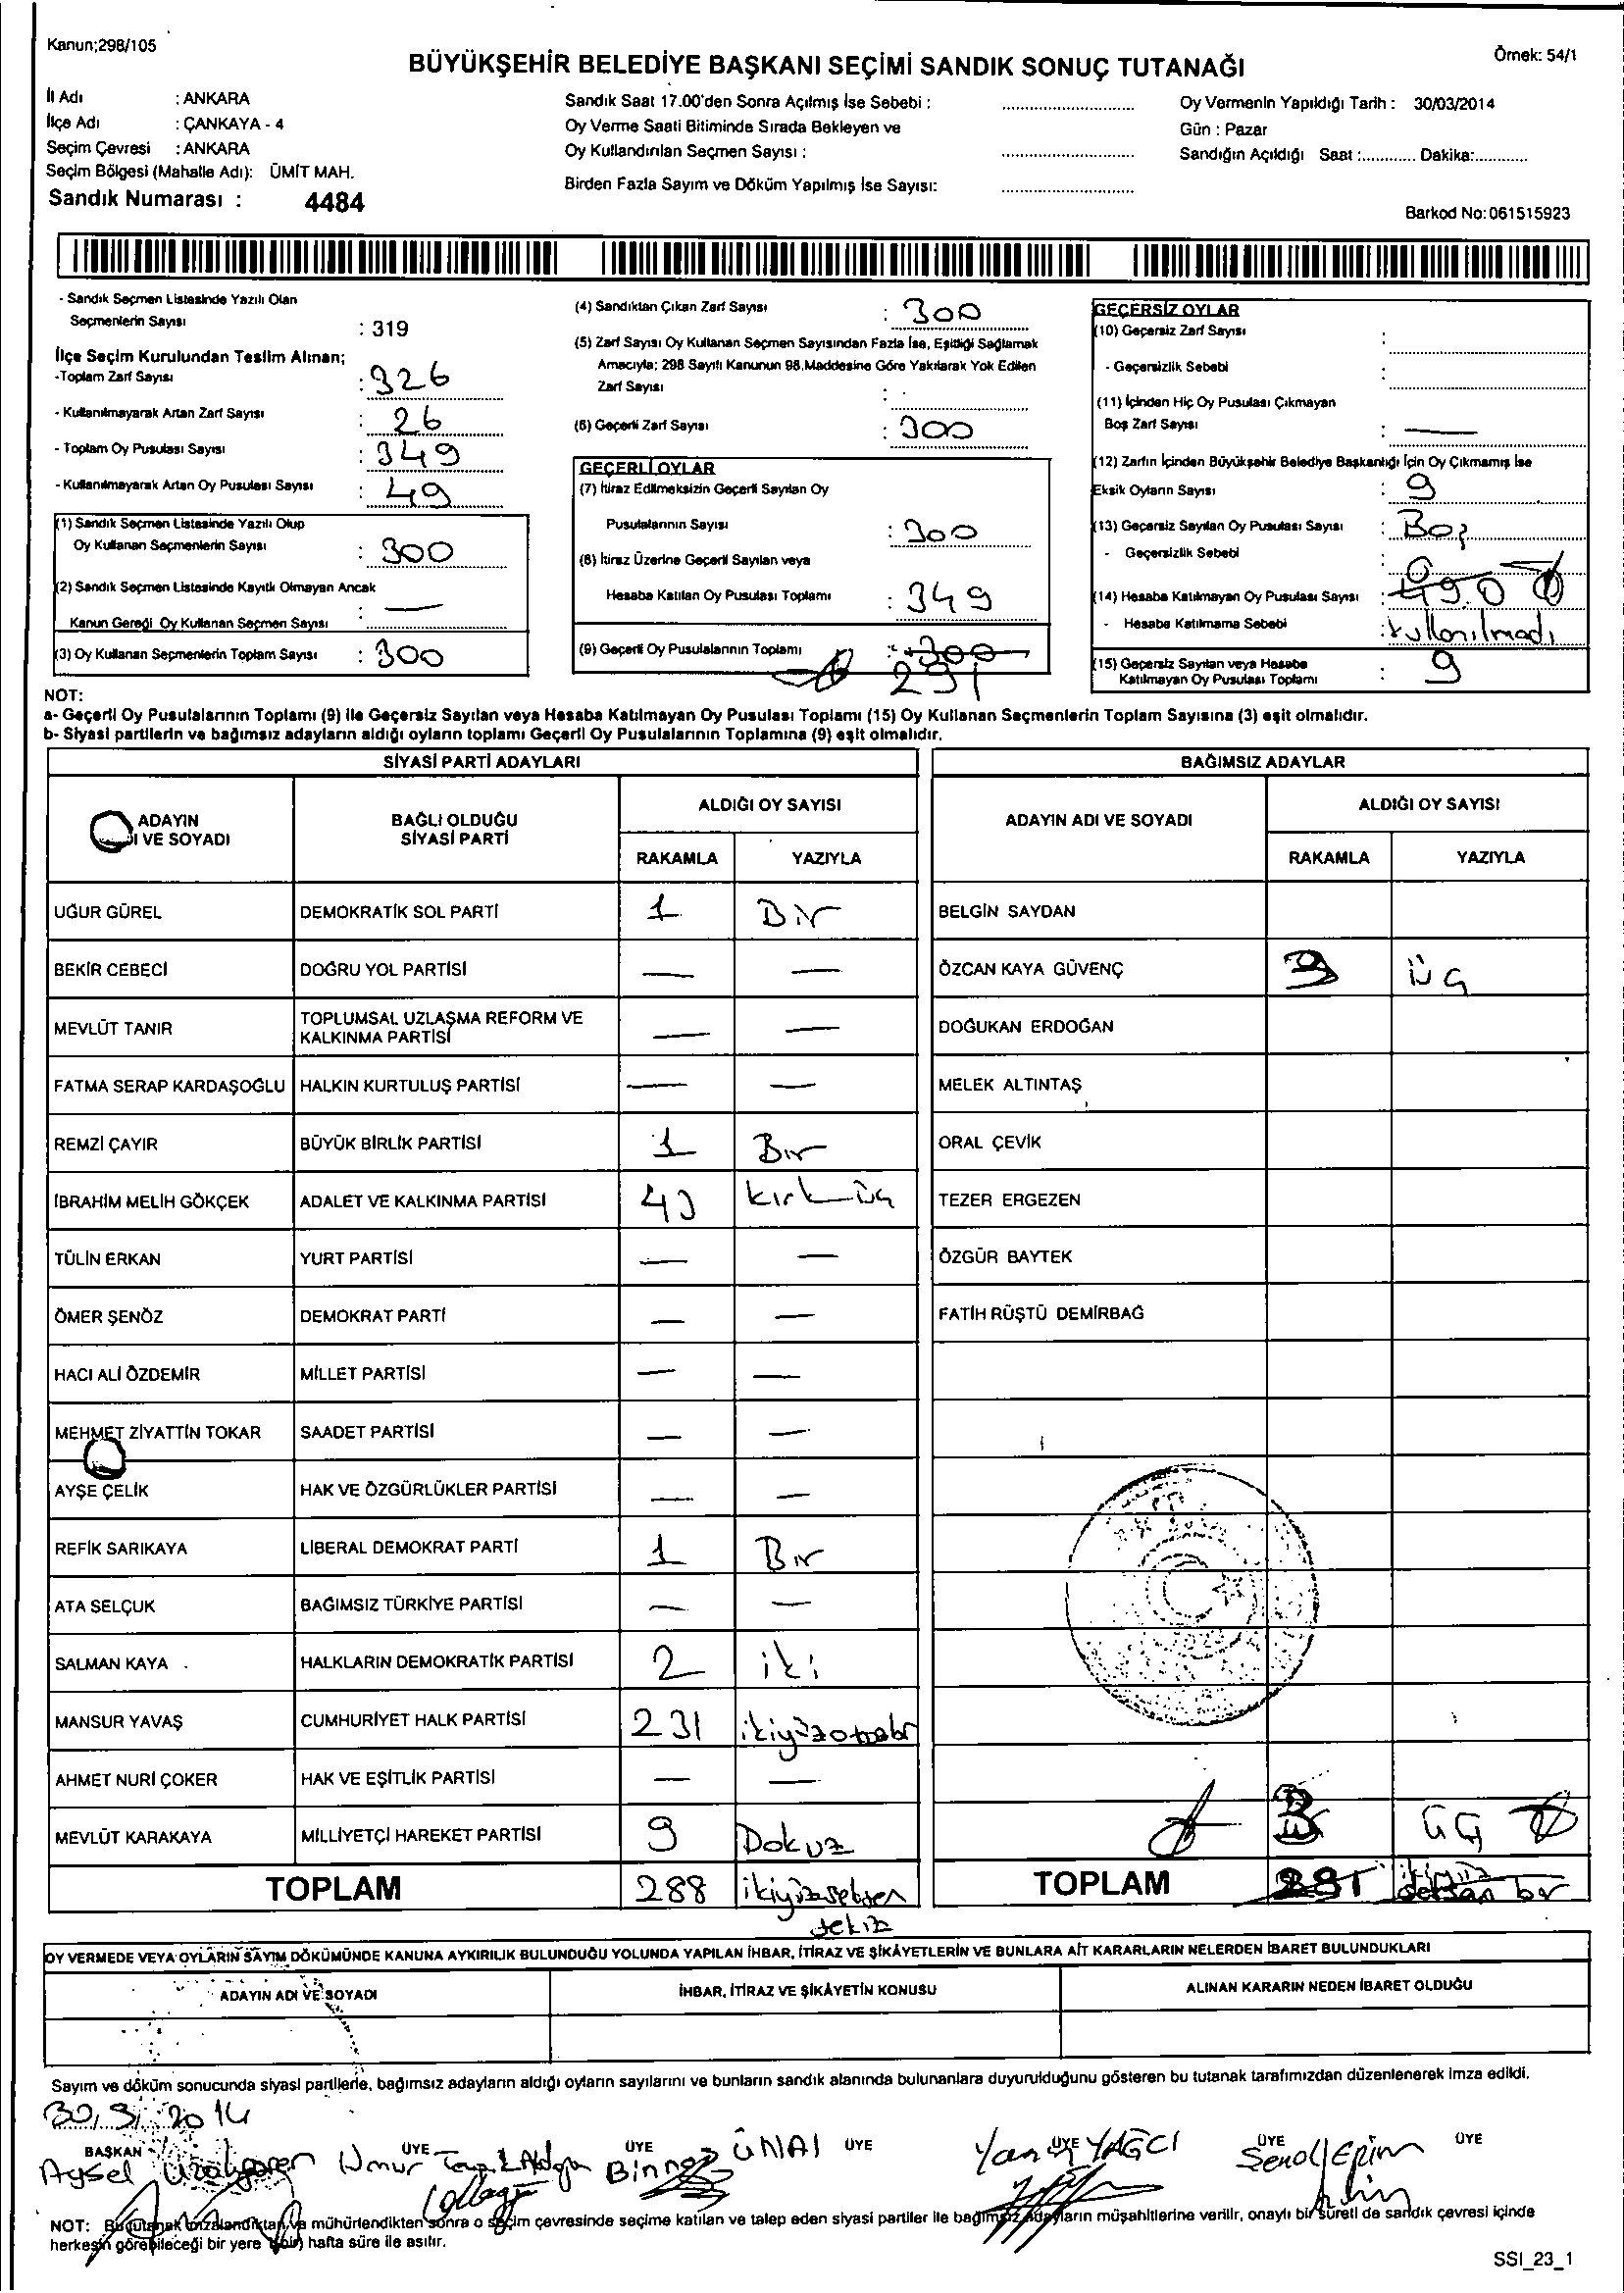 Kanun;298/105
Örnek: 54/1
BÜYÜKŞEHİR BELEDİYE BAŞKANI SEÇİMİ SANDIK SONUÇ TUTANAĞI
İl Adı : ANKARA
İlçe Adı : ÇANKAYA - 4
Seçim Çevresi : ANKARA
Seçim Bölgesi (Mahalle Adı): ÜMİT MAH.
Sandık Numarası : 4484
Sandık Saat 17.00'den Sonra Açılmış İse Sebebi :
Oy Verme Saati Bitiminde Sırada Bekleyen ve
Oy Kullandırılan Seçmen Sayısı :
Birden Fazla Sayım ve Döküm Yapılmış İse Sayısı:
Oy Vermenin Yapıldığı Tarih : 30/03/2014
Gün : Pazar
Sandığın Açıldığı Saat :............ Dakika:............
Barkod No:061515923
- Sandık Seçmen Listesinde Yazılı Olan
Seçmenlerin Sayısı : 319
İlçe Seçim Kurulundan Teslim Alınan;
-Toplam Zarf Sayısı : 326
- Kullanılmayarak Artan Zarf Sayısı : 26
- Toplam Oy Pusulası Sayısı : 349
- Kullanılmayarak Artan Oy Pusulası Sayısı : 49
(1) Sandık Seçmen Listesinde Yazılı Olup
Oy Kullanan Seçmenlerin Sayısı : 300
(2) Sandık Seçmen Listesinde Kayıtlı Olmayan Ancak
Kanun Gereği Oy Kullanan Seçmen Sayısı : —
(3) Oy Kullanan Seçmenlerin Toplam Sayısı : 300
(4) Sandıktan Çıkan Zarf Sayısı : 300
(5) Zarf Sayısı Oy Kullanan Seçmen Sayısından Fazla İse, Eşitliği Sağlamak
Amacıyla; 298 Sayılı Kanunun 98.Maddesine Göre Yakılarak Yok Edilen
Zarf Sayısı :
(6) Geçerli Zarf Sayısı : 300
GEÇERLİ OYLAR
(7) İtiraz Edilmeksizin Geçerli Sayılan Oy
Pusulalarının Sayısı : 300
(8) İtiraz Üzerine Geçerli Sayılan veya
Hesaba Katılan Oy Pusulası Toplamı : 349
(9) Geçerli Oy Pusulalarının Toplamı : 300
291
GEÇERSİZ OYLAR
(10) Geçersiz Zarf Sayısı :
- Geçersizlik Sebebi :
(11) İçinden Hiç Oy Pusulası Çıkmayan
Boş Zarf Sayısı : —
(12) Zarfın İçinden Büyükşehir Belediye Başkanlığı İçin Oy Çıkmamış İse
Eksik Oyların Sayısı : 9
(13) Geçersiz Sayılan Oy Pusulası Sayısı : Boş
- Geçersizlik Sebebi :
(14) Hesaba Katılmayan Oy Pusulası Sayısı : 49.0
- Hesaba Katılmama Sebebi : kullanılmadı
(15) Geçersiz Sayılan veya Hesaba
Katılmayan Oy Pusulası Toplamı : 9
NOT:
a- Geçerli Oy Pusulalarının Toplamı (9) ile Geçersiz Sayılan veya Hesaba Katılmayan Oy Pusulası Toplamı (15) Oy Kullanan Seçmenlerin Toplam Sayısına (3) eşit olmalıdır.
b- Siyasi partilerin ve bağımsız adayların aldığı oyların toplamı Geçerli Oy Pusulalarının Toplamına (9) eşit olmalıdır.
SİYASİ PARTİ ADAYLARI
ADAYIN
I VE SOYADI
BAĞLI OLDUĞU
SİYASİ PARTİ
ALDIĞI OY SAYISI
RAKAMLA YAZIYLA
UĞUR GÜREL DEMOKRATİK SOL PARTİ 1 Bir
BEKİR CEBECİ DOĞRU YOL PARTİSİ — —
MEVLÜT TANIR TOPLUMSAL UZLAŞMA REFORM VE
KALKINMA PARTİSİ — —
FATMA SERAP KARDAŞOĞLU HALKIN KURTULUŞ PARTİSİ — —
REMZİ ÇAYIR BÜYÜK BİRLİK PARTİSİ 1 Bir
İBRAHİM MELİH GÖKÇEK ADALET VE KALKINMA PARTİSİ 43 kırk üç
TÜLİN ERKAN YURT PARTİSİ — —
ÖMER ŞENÖZ DEMOKRAT PARTİ — —
HACI ALİ ÖZDEMİR MİLLET PARTİSİ — —
MEHMET ZİYATTİN TOKAR SAADET PARTİSİ — —
AYŞE ÇELİK HAK VE ÖZGÜRLÜKLER PARTİSİ — —
REFİK SARIKAYA LİBERAL DEMOKRAT PARTİ 1 Bir
ATA SELÇUK BAĞIMSIZ TÜRKİYE PARTİSİ — —
SALMAN KAYA HALKLARIN DEMOKRATİK PARTİSİ 2 iki
MANSUR YAVAŞ CUMHURİYET HALK PARTİSİ 231 ikiyüzotuzbir
AHMET NURİ ÇOKER HAK VE EŞİTLİK PARTİSİ — —
MEVLÜT KARAKAYA MİLLİYETÇİ HAREKET PARTİSİ 9 Dokuz
TOPLAM 288 ikiyüzseksen
sekiz
BAĞIMSIZ ADAYLAR
ADAYIN ADI VE SOYADI
ALDIĞI OY SAYISI
RAKAMLA YAZIYLA
BELGİN SAYDAN
ÖZCAN KAYA GÜVENÇ 3 üç
DOĞUKAN ERDOĞAN
MELEK ALTINTAŞ
ORAL ÇEVİK
TEZER ERGEZEN
ÖZGÜR BAYTEK
FATİH RÜŞTÜ DEMİRBAĞ
3 üç
TOPLAM 291
OY VERMEDE VEYA OYLARIN SAYIM DÖKÜMÜNDE KANUNA AYKIRILIK BULUNDUĞU YOLUNDA YAPILAN İHBAR, İTİRAZ VE ŞİKÂYETLERİN VE BUNLARA AİT KARARLARIN NELERDEN İBARET BULUNDUKLARI
ADAYIN ADI VE SOYADI
İHBAR, İTİRAZ VE ŞİKÂYETİN KONUSU
ALINAN KARARIN NEDEN İBARET OLDUĞU
Sayım ve döküm sonucunda siyasi partilerle, bağımsız adayların aldığı oyların sayılarını ve bunların sandık alanında bulunanlara duyurulduğunu gösteren bu tutanak tarafımızdan düzenlenerek imza edildi.
30.3.2014
BAŞKAN ÜYE ÜYE ÜYE ÜYE ÜYE ÜYE
Aysel Umur Binnaz ÜNAL YAĞCI Şenol Erim
NOT: Bu tutanak imzalandıktan ve mühürlendikten sonra o seçim çevresinde seçime katılan ve talep eden siyasi partiler ile bağımsız adayların müşahitlerine verilir, onaylı bir sureti de sandık çevresi içinde
herkesin görebileceği bir yere 1(bir) hafta süre ile asılır.
SSI_23_1